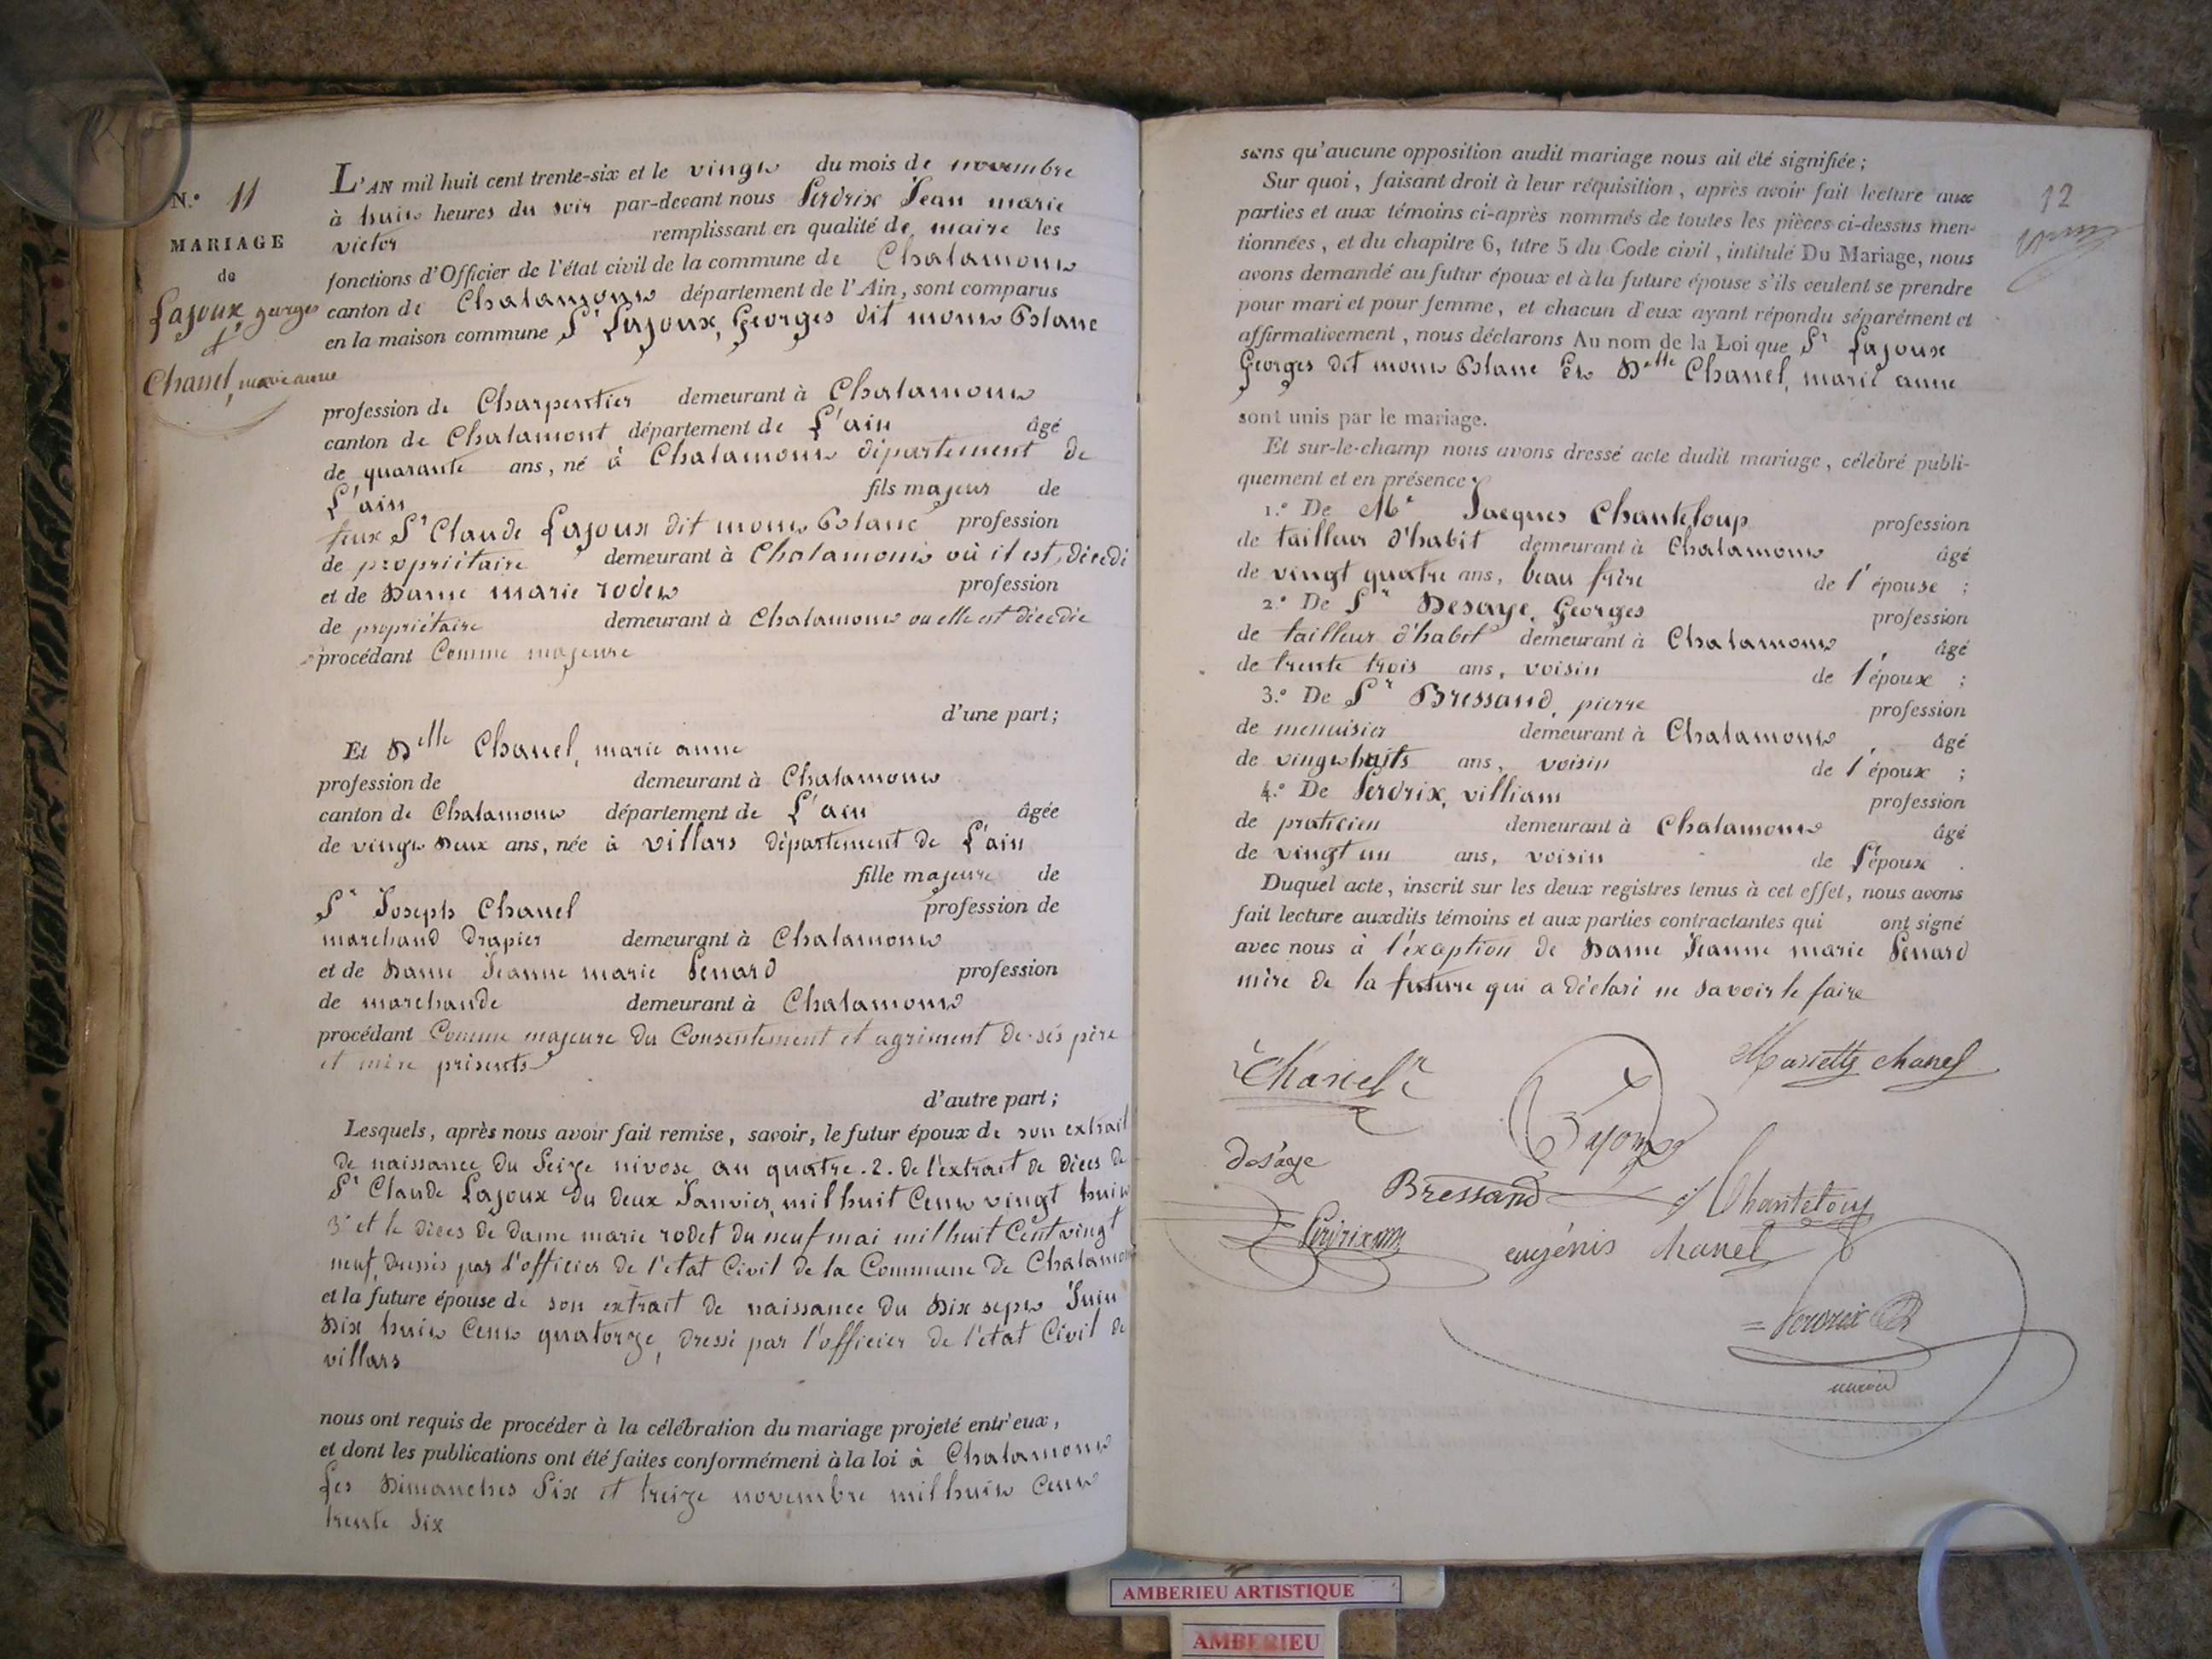 N.° 11
MARIAGE
de
Lajoux, georges
et
Chanel, marie anne
L'AN mil huit cent trente-six et le vingt du mois de novembre
à huit heures du soir par-devant nous Perdrix Jean marie
victor remplissant en qualité de maire les
fonctions d'Officier de l'état civil de la commune de Chalamont
canton de Chalamont département de l'Ain, sont comparus
en la maison commune Sr Lajoux, Georges dit mont Blanc
profession de Charpentier demeurant à Chalamont
canton de Chalamont département de L'ain âgé
de quarante ans, né à Chalamont département de
L'ain fils majeur de
feux Sr Claude Lajoux dit mont Blanc profession
de propriétaire demeurant à Chalamont où il est décédé
et de Dame marie rodet profession
de propriétaire demeurant à Chalamont ou elle est décédée
procédant Comme majeure
d'une part;
Et Delle Chanel, marie anne
profession de demeurant à Chalamont
canton de Chalamont département de L'ain âgée
de vingt deux ans, née à villars département de L'ain
fille majeure de
Sr Joseph Chanel profession de
marchand drapier demeurant à Chalamont
et de Dame Jeanne marie Penard profession
de marchande demeurant à Chalamont
procédant Comme majeure du Consentement et agriment de ses père
et mère présents
d'autre part;
Lesquels, après nous avoir fait remise, savoir, le futur époux de son extrait
de naissance du Seize nivose an quatre. 2. de l'extrait de décès de
Sr Claude Lajoux du deux Janvier, mil huit Cent vingt huit
3° et le décès de dame marie rodet du neuf mai mil huit Cent vingt
neuf, dressés par l'officier de l'état Civil de la Commune de Chalamont
et la future épouse de son extrait de naissance du Dix sept Juin
Dix huit Cent quatorze, dressé par l'officier de l'état Civil de
villars
nous ont requis de procéder à la célébration du mariage projeté entr'eux,
et dont les publications ont été faites conformément à la loi à Chalamont
Les Dimanches Six et treize novembre mil huit Cent
trente Six
12
sans qu'aucune opposition audit mariage nous ait été signifiée;
Sur quoi, faisant droit à leur réquisition, après avoir fait lecture aux
parties et aux témoins ci-après nommés de toutes les pièces ci-dessus men-
tionnées, et du chapitre 6, titre 5 du Code civil, intitulé Du Mariage, nous
avons demandé au futur époux et à la future épouse s'ils veulent se prendre
pour mari et pour femme, et chacun d'eux ayant répondu séparément et
affirmativement, nous déclarons Au nom de la Loi que Sr Lajoux
Georges dit mont Blanc Et Delle Chanel, marie anne
sont unis par le mariage.
Et sur-le-champ nous avons dressé acte dudit mariage, célébré publi-
quement et en présence:
1.° De Mr Jacques Chanteloup profession
de tailleur d'habit demeurant à Chalamont âgé
de vingt quatre ans, beau frère de l'épouse;
2.° De Sr Desaye, Georges profession
de tailleur d'habit demeurant à Chalamont, âgé
de trente trois ans, voisin de l'époux;
3.° De Sr Bressand, pierre profession
de menuisier demeurant à Chalamont, âgé
de vingt huits ans, voisin de l'époux;
4.° De Perdrix, villiam profession
de praticien demeurant à Chalamont âgé
de vingt un ans, voisin de l'époux.
Duquel acte, inscrit sur les deux registres tenus à cet effet, nous avons
fait lecture auxdits témoins et aux parties contractantes qui ont signé
avec nous à l'exception de Dame Jeanne marie Penard
mère de la future qui a déclaré ne savoir le faire
Chanel
Mariette chanel
desaye
Bressand
Chanteloup
Perdrix
eugénis chanel
Perdrix
AMBERIEU ARTISTIQUE
AMBERIEU